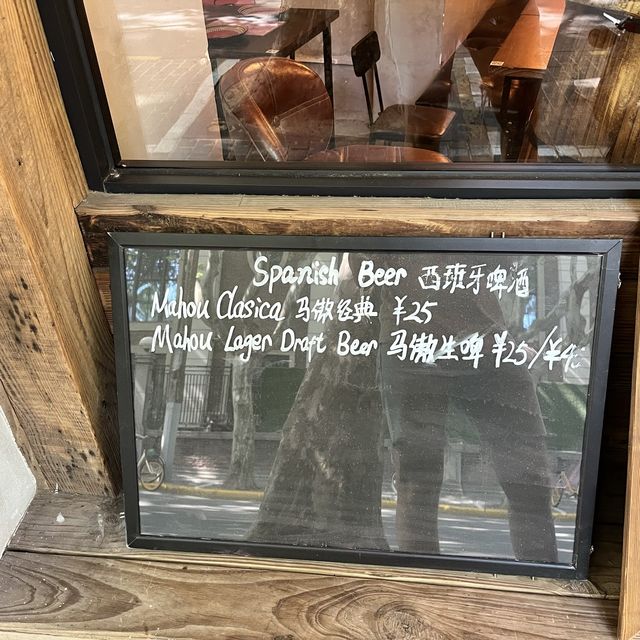 Spanish Beer 西班牙啤酒
Mahou Clasica 马傲经典 ¥25
Mahou Lager Draft Beer 马傲生啤 ¥25/¥4